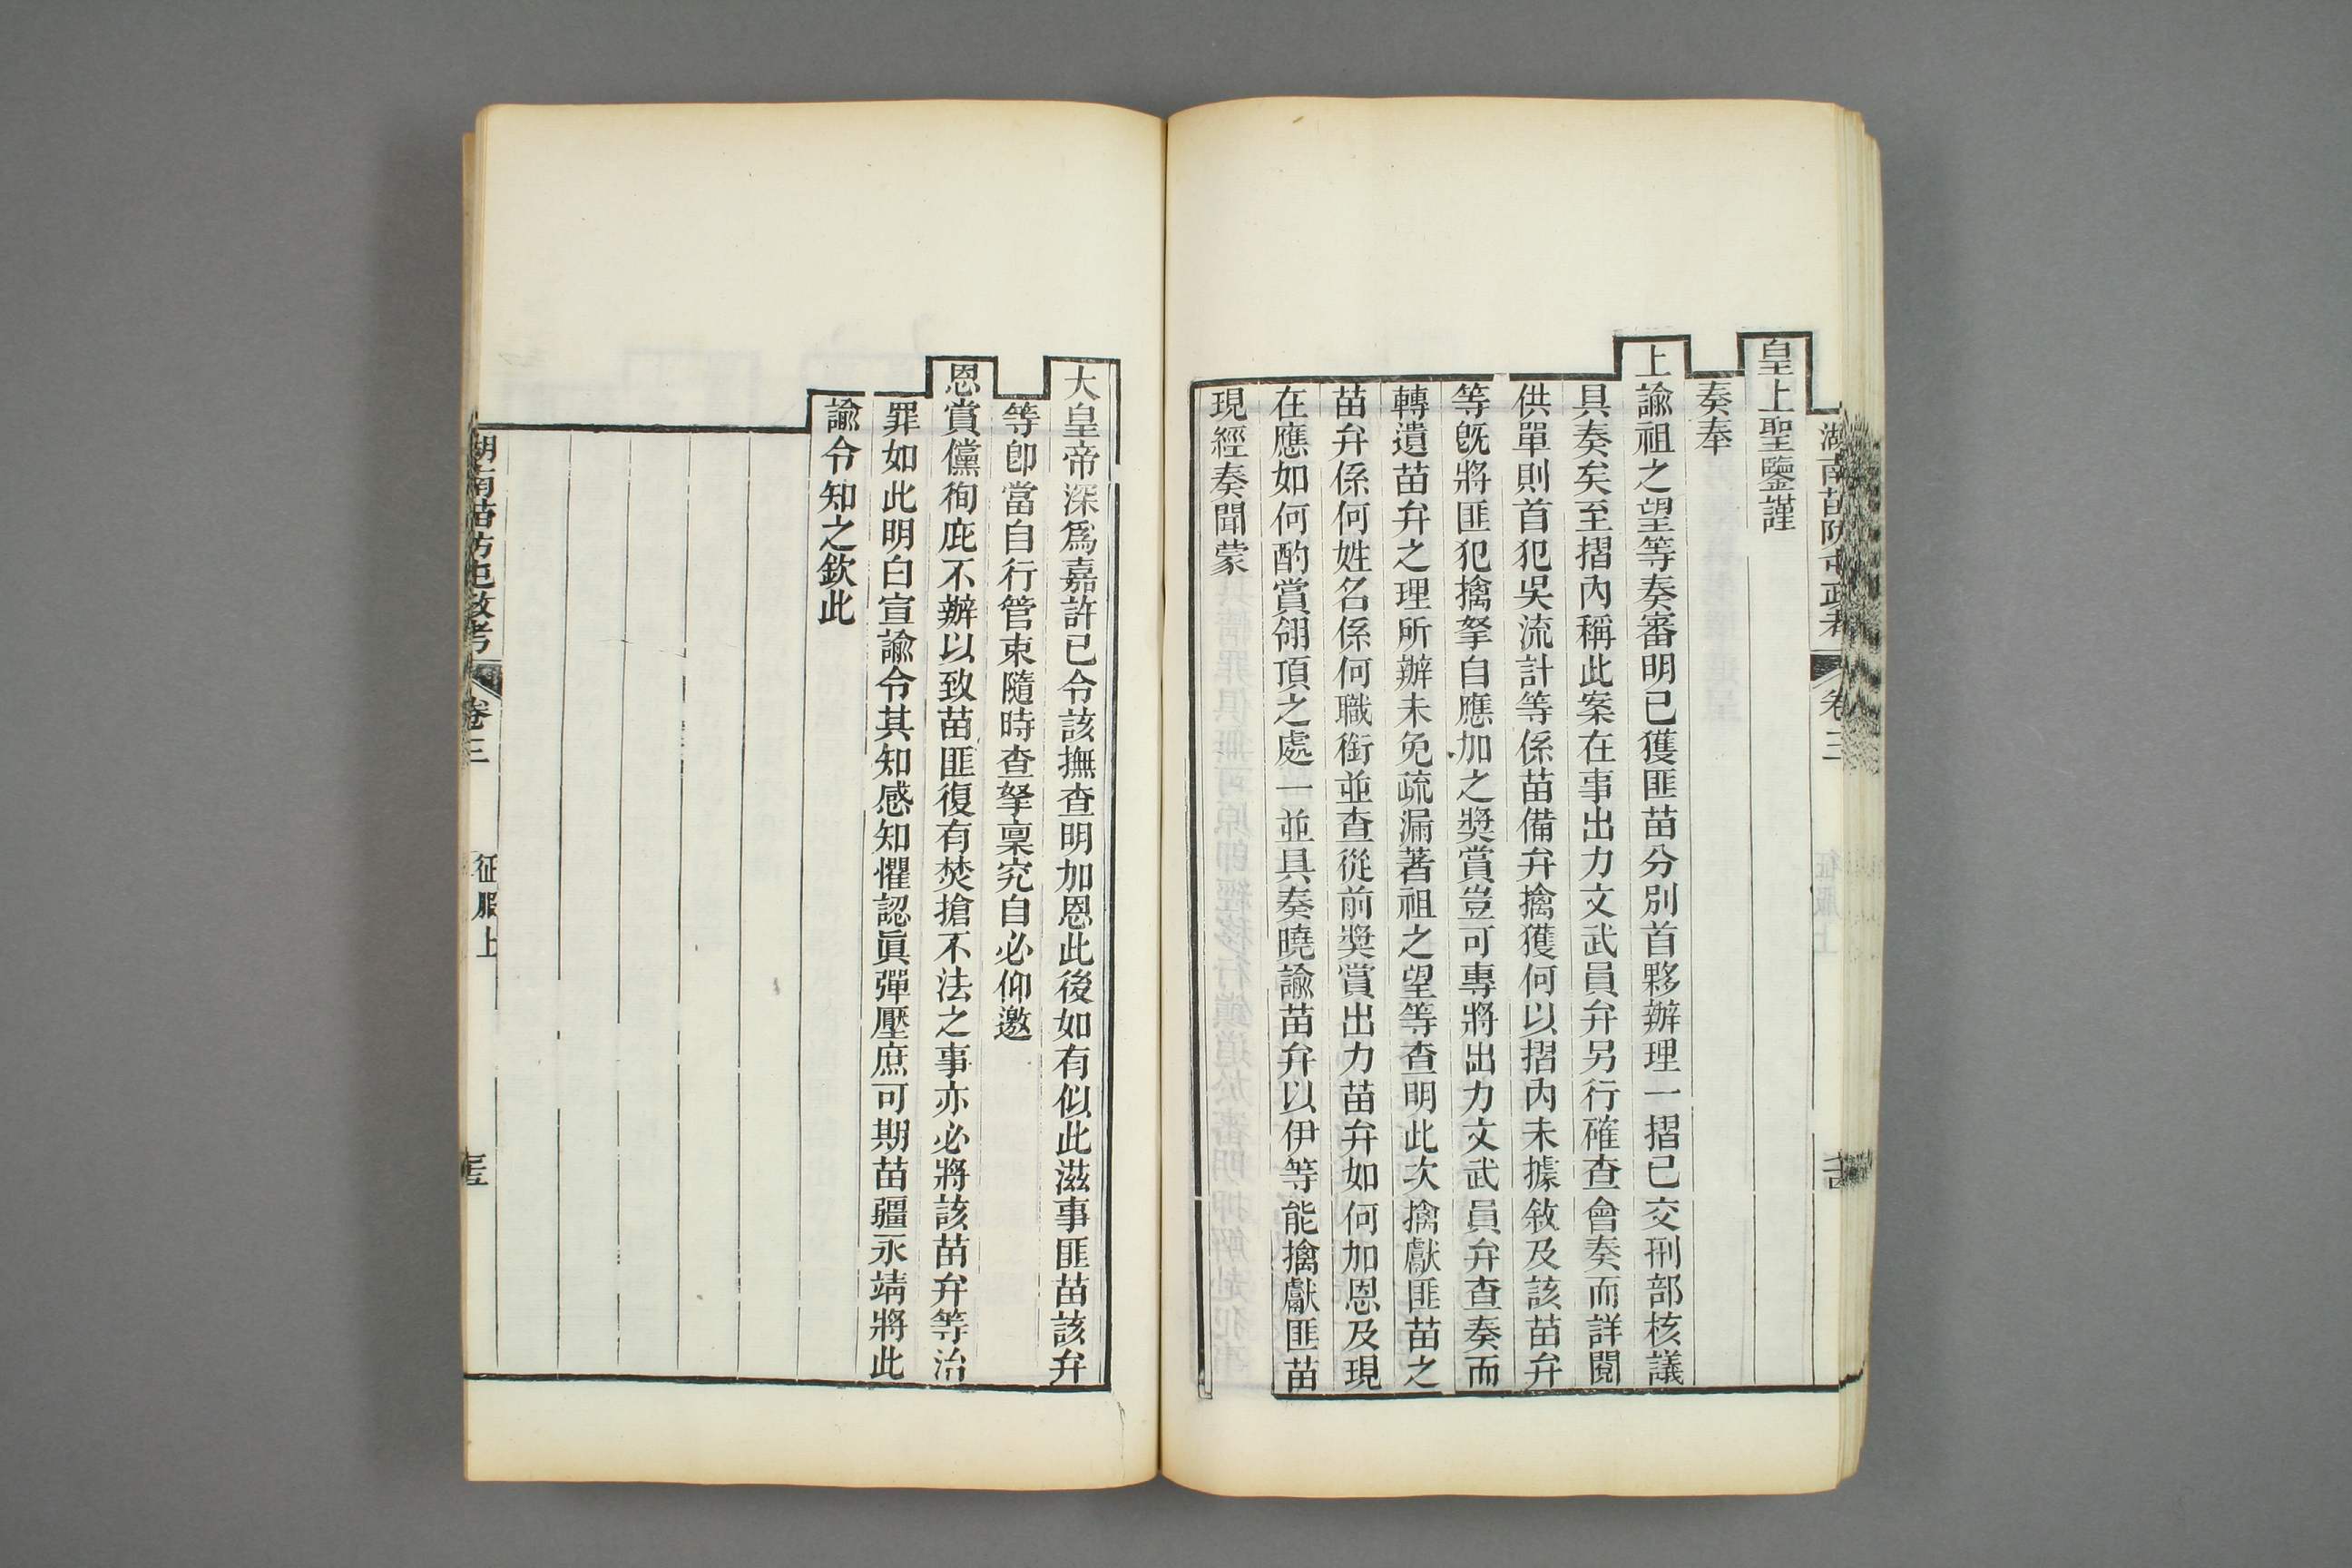 湖南苗防屯政考
卷三
皇上聖鑒謹
奏奉
上諭祖之望等奏審明已獲匪苗分別首夥辦理一摺已交刑部核議
具奏矣至摺內稱此案在事出力文武員弁另行確查會奏而詳閱
供單則首犯吳流計等係苗備弁擒獲何以摺內未據敘及該苗弁
等旣將匪犯擒拏自應加之獎賞豈可專將出力文武員弁查奏而
轉遺苗弁之理所辦未免疏漏著祖之望等查明此次擒獻匪苗之
苗弁係何姓名係何職銜並查從前獎賞出力苗弁如何加恩及現
在應如何酌賞翎頂之處一並具奏曉諭苗弁以伊等能擒獻匪苗
現經奏聞蒙
大皇帝深爲嘉許已令該撫查明加恩此後如有似此滋事匪苗該弁
等卽當自行管束隨時查拏稟究自必仰邀
恩賞儻徇庇不辦以致苗匪復有焚搶不法之事亦必將該苗弁等治
罪如此明白宣諭令其知感知懼認眞彈壓庶可期苗疆永靖將此
諭令知之欽此
湖南苗防屯政考
卷三
征服上